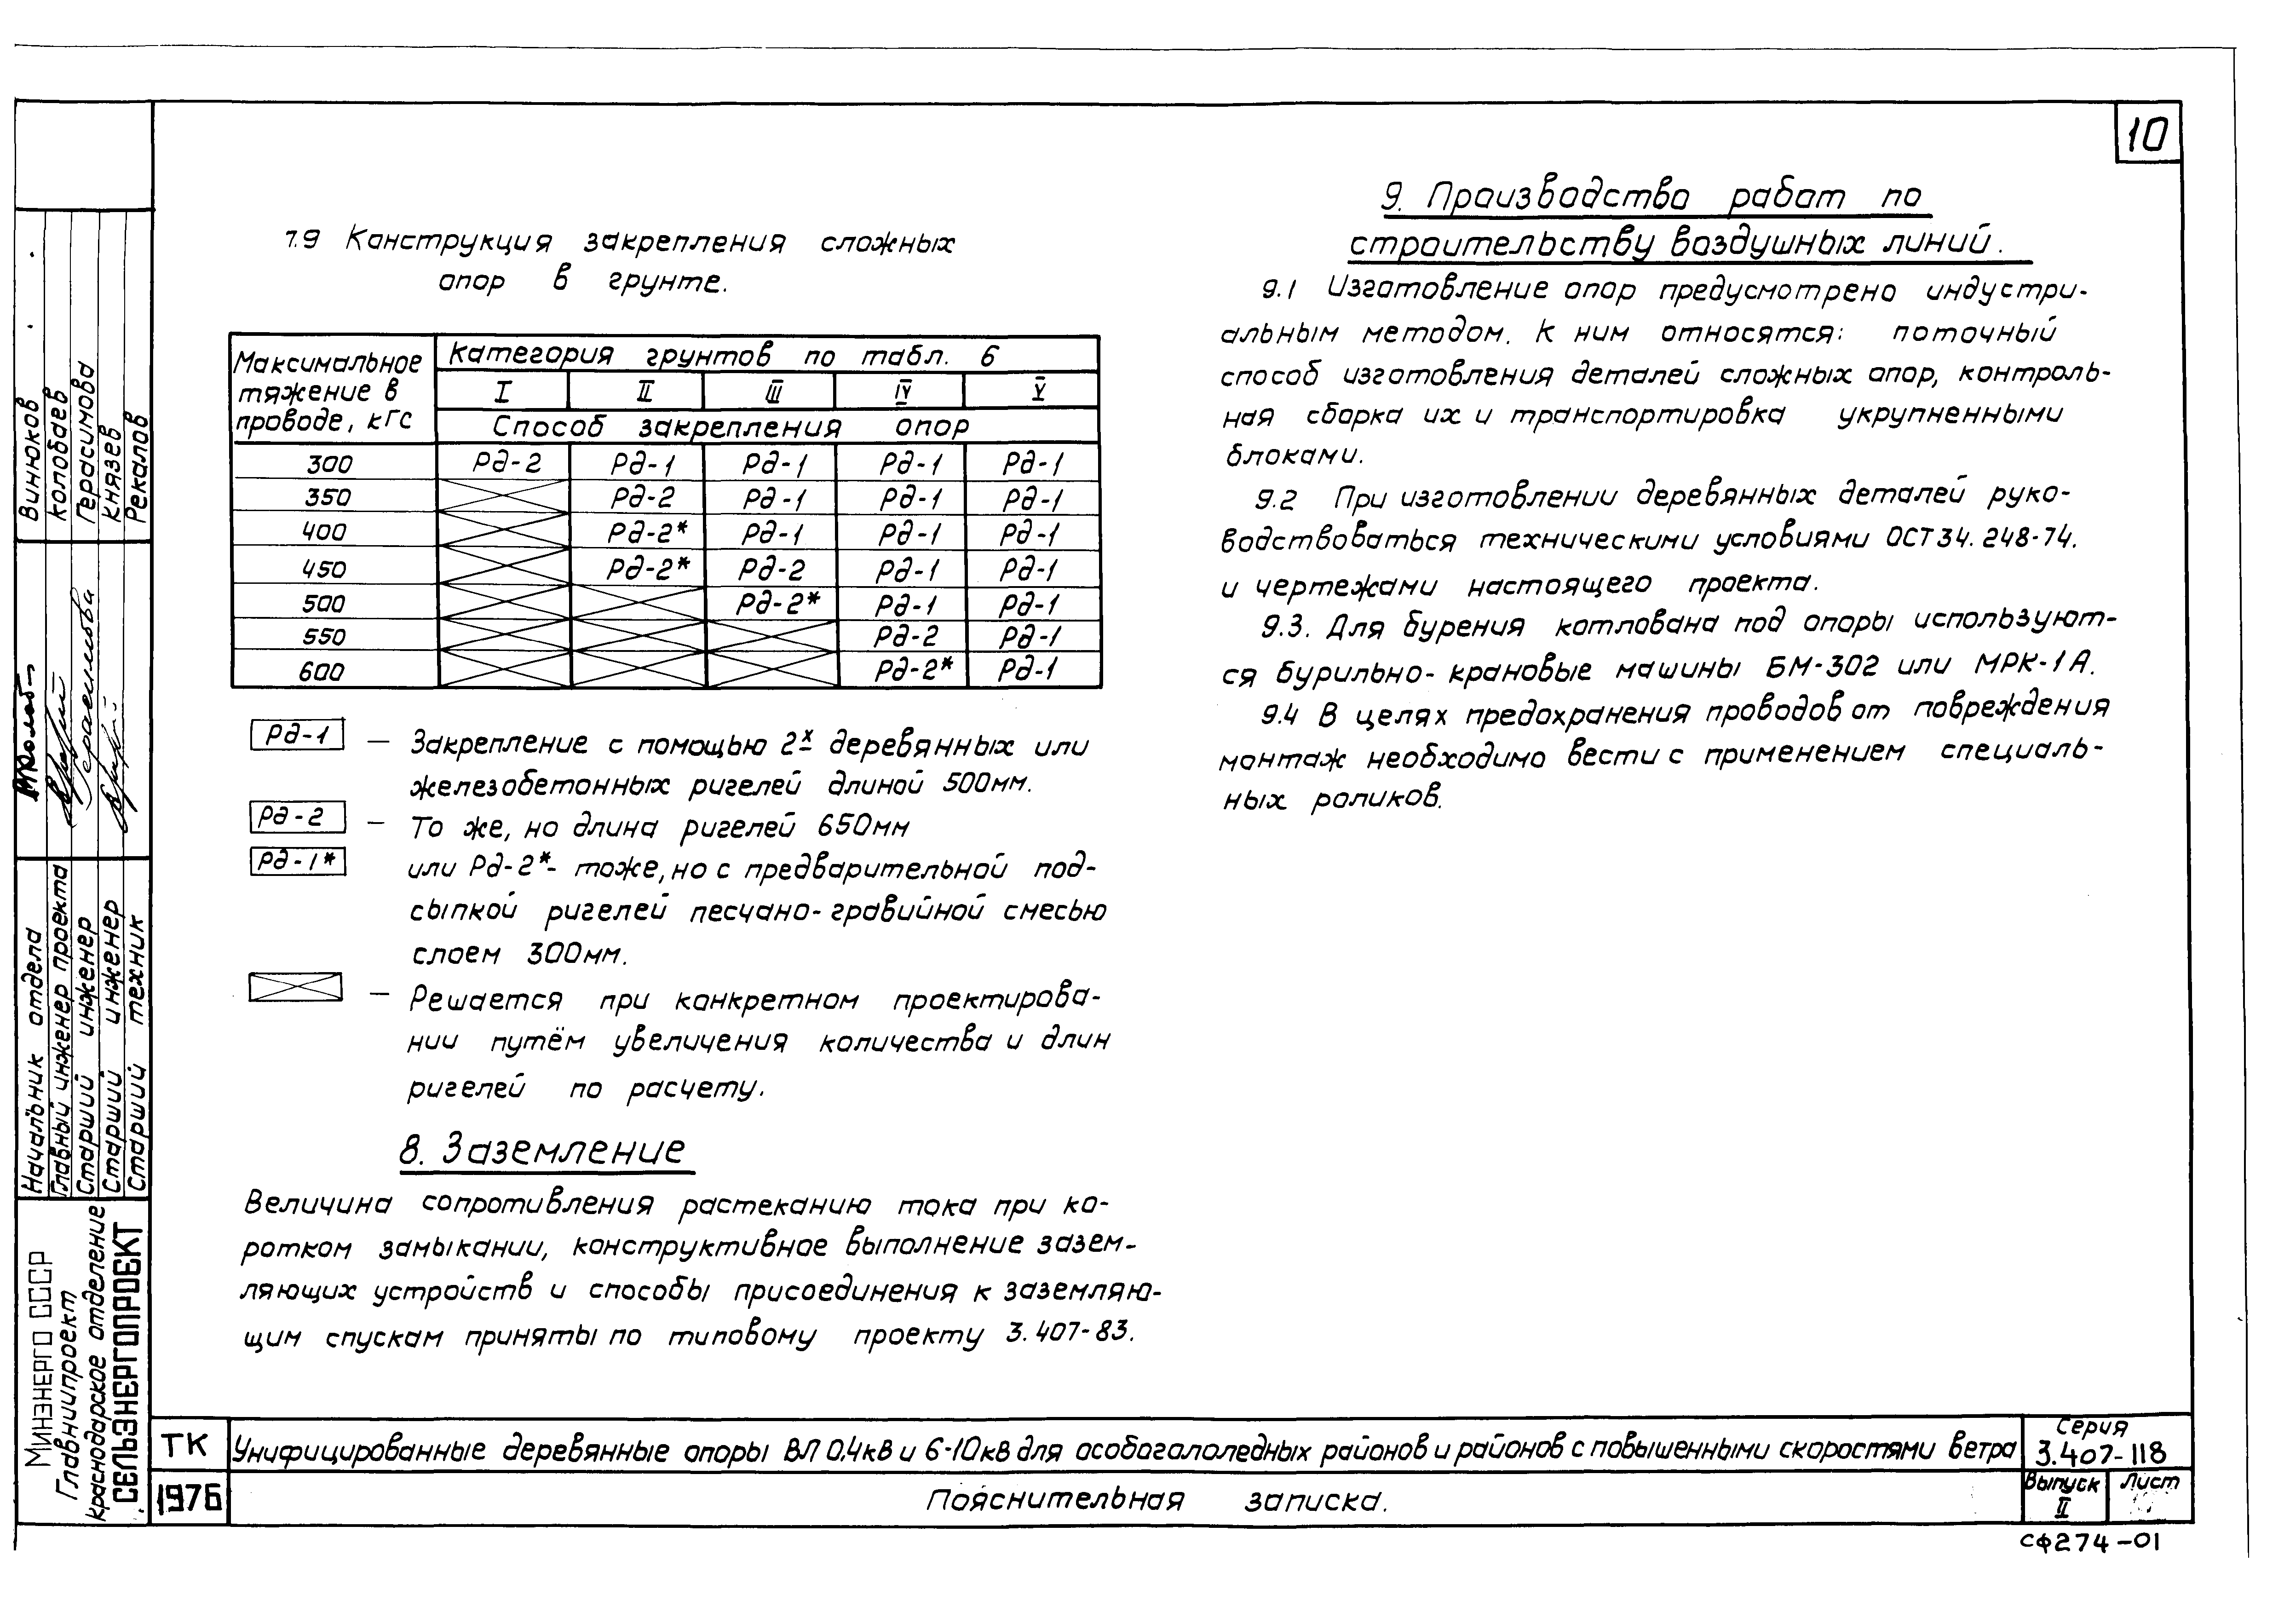 10
7.9 Конструкция закрепления сложных
опор в грунте.
Максимальное
тяжение в
проводе, кГс
Категория грунтов по табл. 6
I II III IV V
Способ закрепления опор
300 Рд-2 Рд-1 Рд-1 Рд-1 Рд-1
350 Рд-2 Рд-1 Рд-1 Рд-1
400 Рд-2* Рд-1 Рд-1 Рд-1
450 Рд-2* Рд-2 Рд-1 Рд-1
500 Рд-2* Рд-1 Рд-1
550 Рд-2 Рд-1
600 Рд-2* Рд-1
Рд-1 — Закрепление с помощью 2х деревянных или
железобетонных ригелей длиной 500мм.
Рд-2 — То же, но длина ригелей 650мм
Рд-1* или Рд-2*- тоже, но с предварительной под-
сыпкой ригелей песчано-гравийной смесью
слоем 300мм.
— Решается при конкретном проектирова-
нии путём увеличения количества и длин
ригелей по расчету.
8. Заземление
Величина сопротивления растеканию тока при ко-
ротком замыкании, конструктивное выполнение зазем-
ляющих устройств и способы присоединения к заземляю-
щим спускам приняты по типовому проекту 3.407-83.
9. Производство работ по
строительству воздушных линий.
9.1 Изготовление опор предусмотрено индустри-
альным методом. К ним относятся: поточный
способ изготовления деталей сложных опор, контроль-
ная сборка их и транспортировка укрупненными
блоками.
9.2 При изготовлении деревянных деталей руко-
водствоваться техническими условиями ОСТ 34.248-74.
и чертежами настоящего проекта.
9.3. Для бурения котлована под опоры используют-
ся бурильно-крановые машины БМ-302 или МРК-1А.
9.4 В целях предохранения проводов от повреждения
монтаж необходимо вести с применением специаль-
ных роликов.
Винюков
Колобаев
Герасимова
Князев
Рекалов
Начальник отдела
Главный инженер проекта
Старший инженер
Старший инженер
Старший техник
МИНЭНЕРГО СССР
Главниипроект
Краснодарское отделение
СЕЛЬЭНЕРГОПРОЕКТ
ТК
1976
Унифицированные деревянные опоры ВЛ 0,4кВ и 6-10кВ для особогалоледных районов и районов с повышенными скоростями ветра
Пояснительная записка.
Серия
3.407-118
Выпуск
II
Лист
СФ274-01